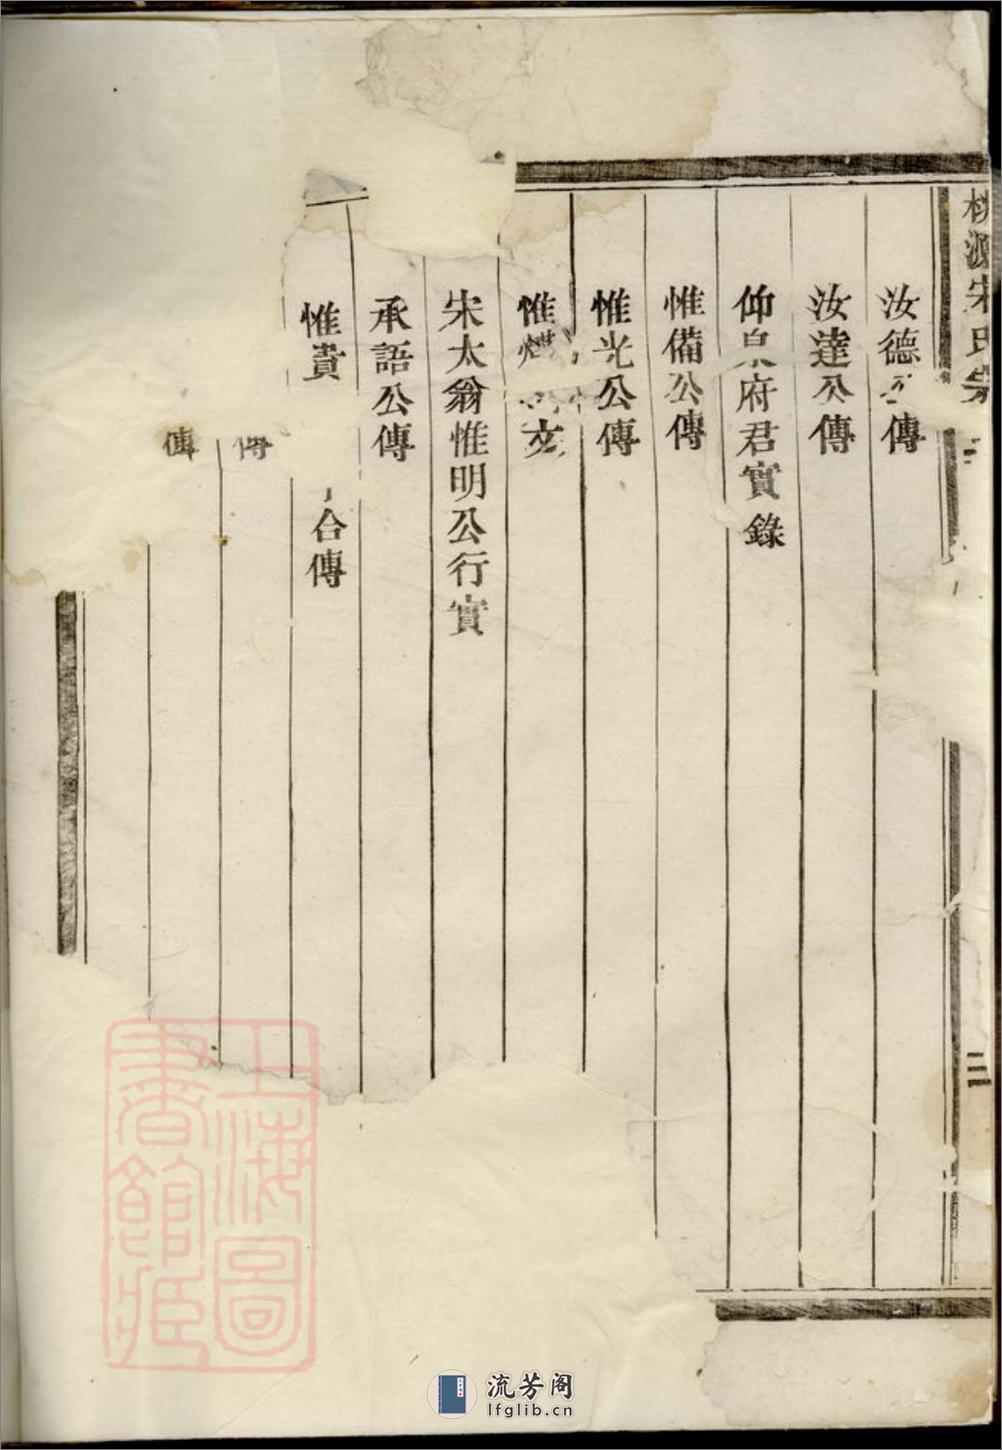 桃源宋氏宗
三
汝德公傳
汝達公傳
仰泉府君實錄
惟備公傳
惟光公傳
惟 文
宋太翁惟明公行實
承語公傳
惟貴 合傳
傳
傳
上海圖
書館藏
流芳阁
lfglib.cn